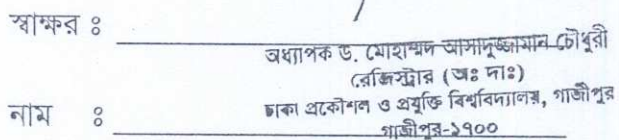 স্বাক্ষর ঃ
অধ্যাপক ড. মোহাম্মদ আসাদুজ্জামান চৌধুরী
রেজিস্ট্রার (অঃ দাঃ)
নাম ঃ ঢাকা প্রকৌশল ও প্রযুক্তি বিশ্ববিদ্যালয়, গাজীপুর
গাজীপুর-১৭০০